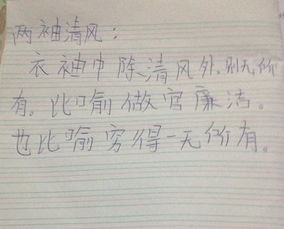 两袖清风：
衣袖中除清风外，别无所
有。比喻做官廉洁。
也比喻穷得一无所有。